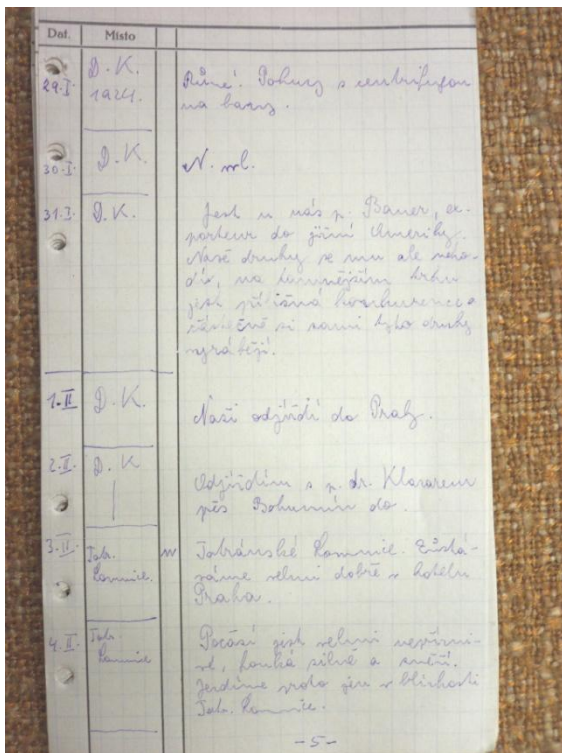 Dat. Místo
29.I. D. K. 1924. Různé. Pokusy s centrifugou
na barvy.
30.I. D. K. N. vl.
31.I. D. K. Jest u nás p. Bauer, ex-
porteur do jižní Ameriky.
Naše druhy se mu ale neho-
dí, na tamnějším trhu
jest přílišná konkurence a
si sami tyto druhy
vyrábějí.
1.II D. K. Naši odjíždí do Prahy.
2.II. D. K Odjíždím s p. dr. Klazarem
přes Bohumín do.
3.II. Tatr. Lomnice. Tatránské Lomnice. Zůstá-
váme velmi dobře v hotelu
Praha.
4.II. Tatr. Lomnice Počasí jest velmi nepřízni-
vé, fouká silně a sněží.
Jezdíme proto jen v blízkosti
Tatr. Lomnice.
-5-